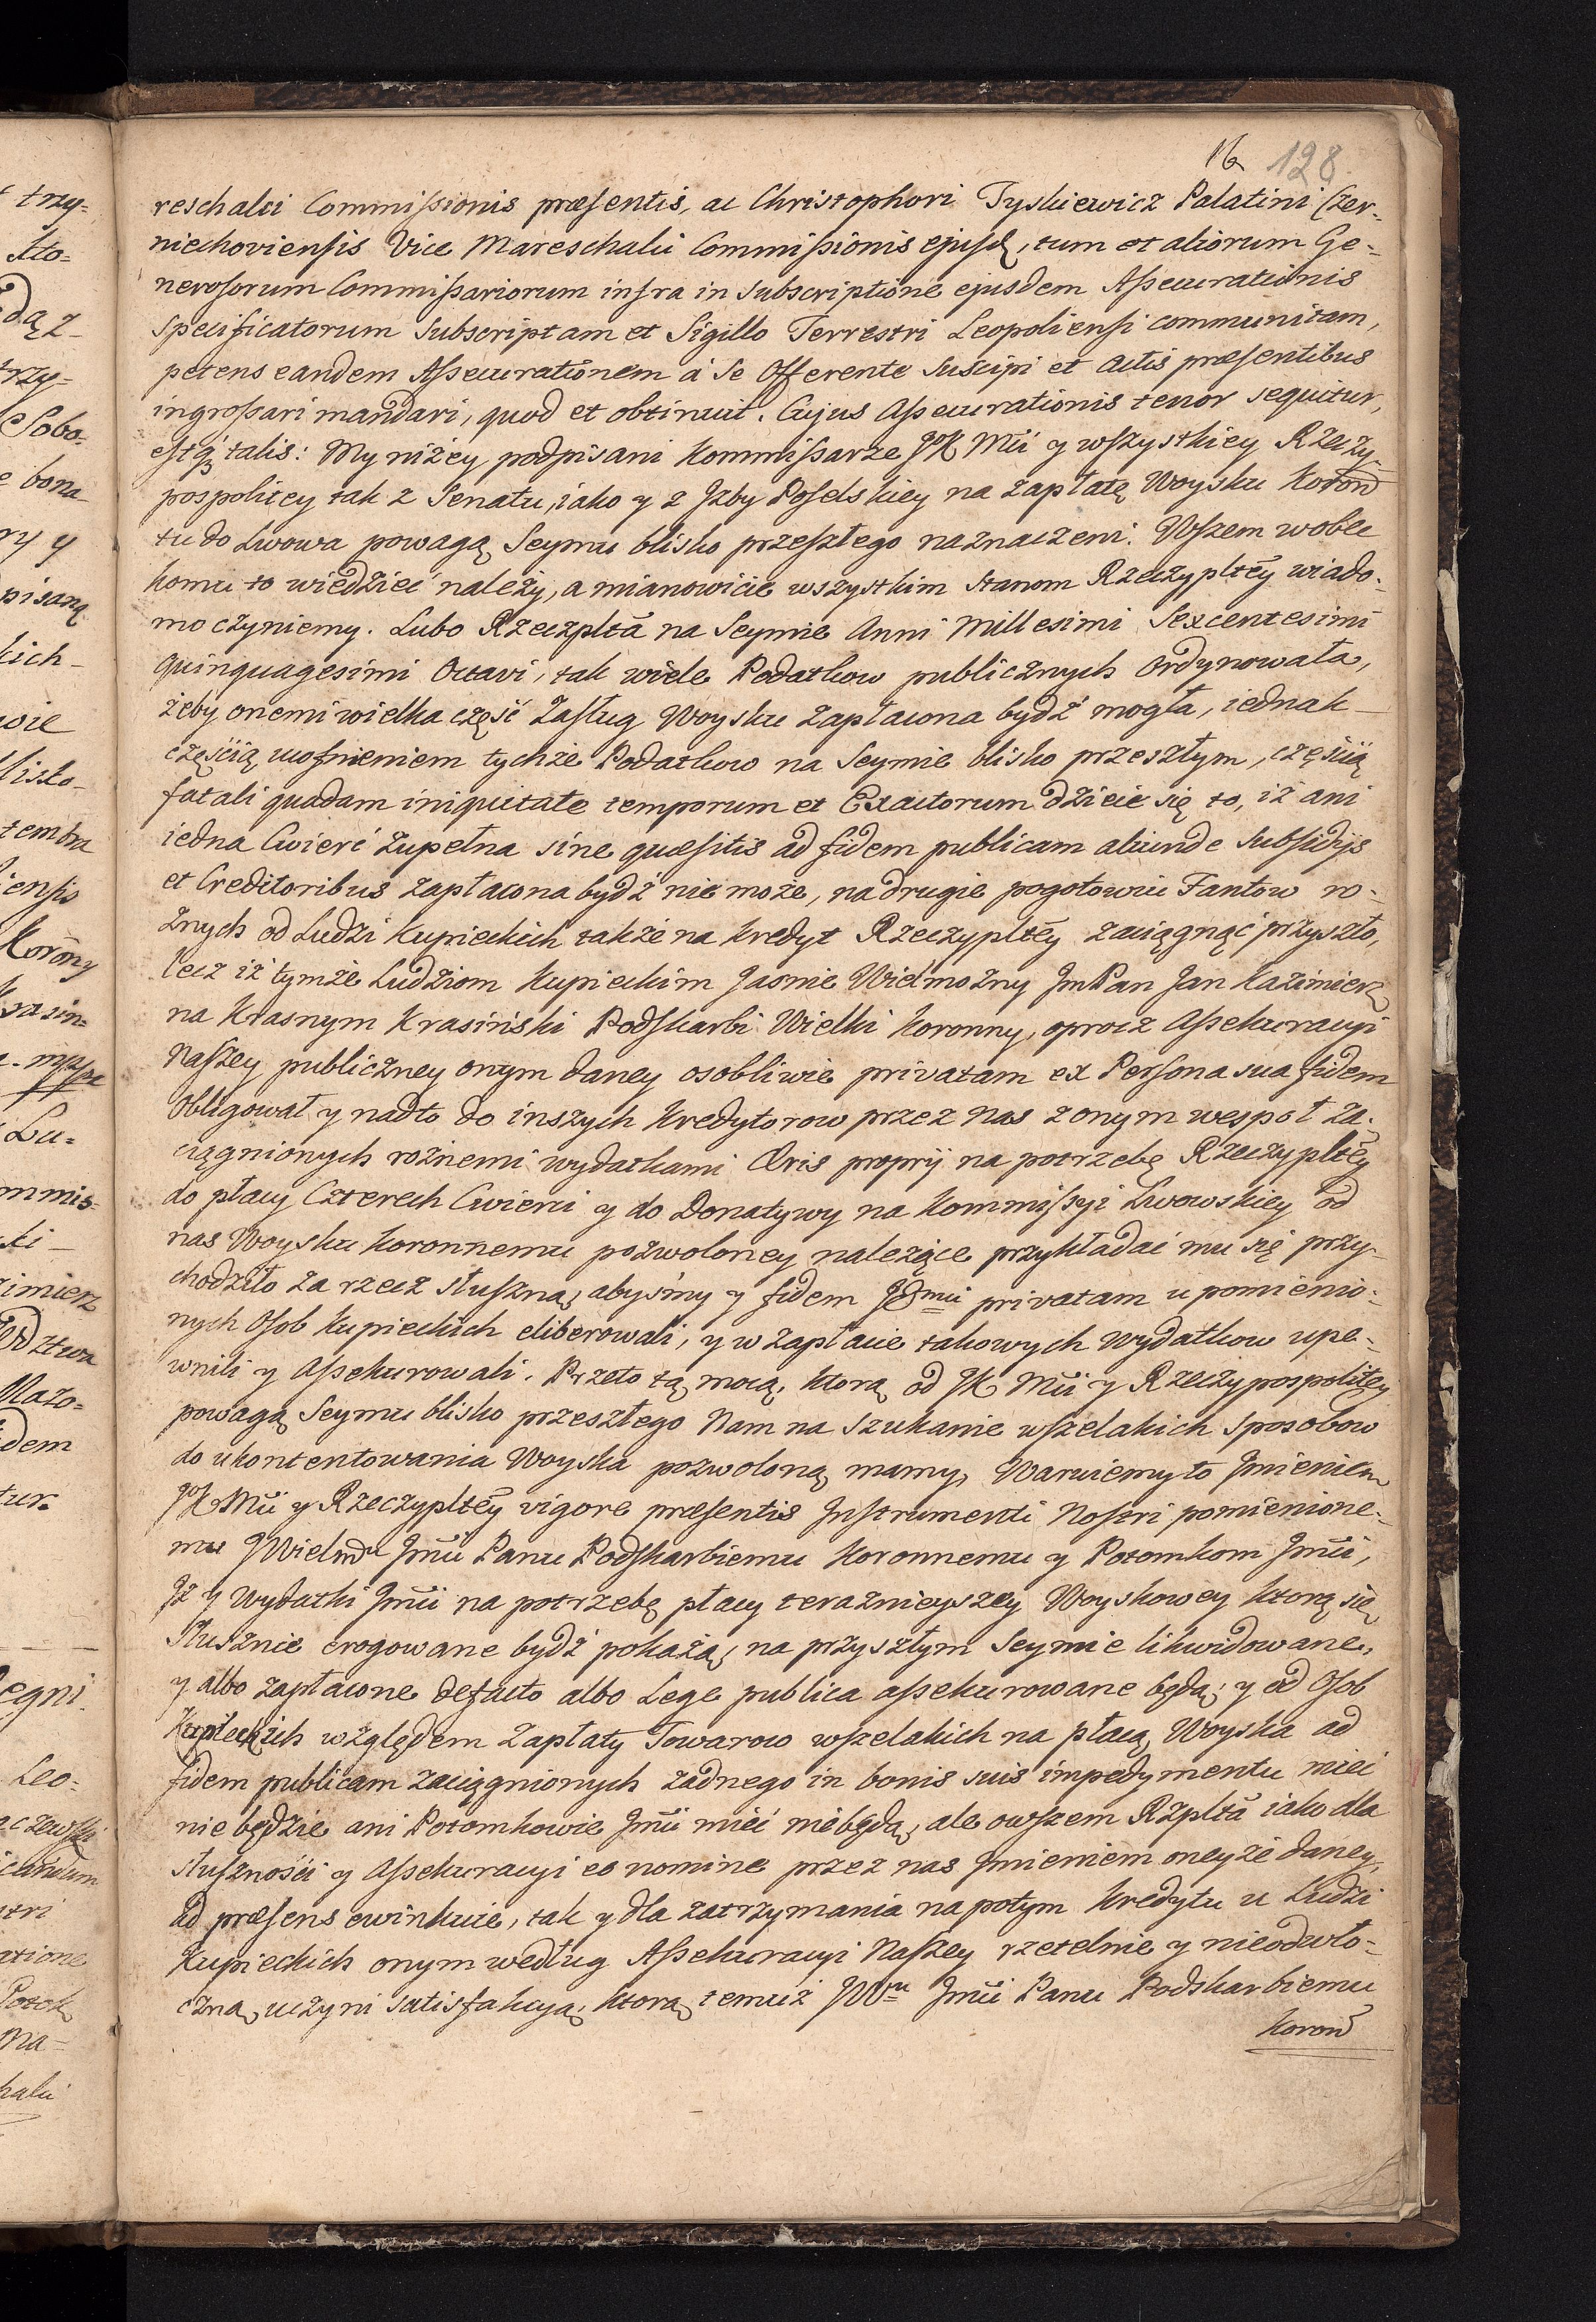 16 128
reschalci Commissionis præsentis, ac Christophori Tyskiewicz Palatini Czer-
niechoviensis Vice Mareschalci Commissionis ejusd, tum et aliorum Ge-
nerosorum Commissariorum infra in Subscriptione ejusdem Assecurationis
specificatorum Subscriptam et Sigillo Terrestri Leopoliensi communitam,
petens eandem Assecurationem à Se Offerente Suscipi et Actis præsentibus
ingrossari mandari, quod et obtinuit. Cujus Assecurationis tenor sequitur,
estq talis: My niżey podpisani Kommissarze JK Mci y wszystkiey Rzeczy-
pospolitey tak z Senatu, iako y z Jzby Poselskiey na zapłatę Woysku Koron
tu do Lwowa powagą Seymu blisko przeszłego naznaczeni. Wszem wobec
komu to wiedzieć należy, a mianowicie wszystkim Stanom Rzeczypltey wiado-
mo czyniemy. Lubo Rzeczplta na Seymie Anni Millesimi Sexcentesimi
quinquagesimi Octavi, tak wiele Podatkow publicznych Ordynowała,
żeby onemi wielka część Zasług Woysku zapłacona bydź mogła, iednak
częścią uosnieniem tychże Podatkow na Seymie blisko przeszłym, częścią
fatali quadam iniquitate temporum et Exactorum dzieie się to, iż ani
iedna Cwierć zupełna sine quæsitis ad fidem publicam aliunde Subsidijs
et Creditoribus zapłacona bydź nie może, na drugie pogotowiu Fantow ro-
żnych od Ludzi Kupieckich także na Kredyt Rzeczyplty zaciągnąć przyszło,
lecz iż tymże Ludziom Kupieckim Jasnie Wielmożny JmPan Jan Kazimierz
na Krasnym Krasiński Podskarbi Wielki Koronny, oprocz Assekuracyi
Naszey publiczney onym daney osobliwie privatam ex Persona sua fidem
Obligował y nadto do inszych Kredytorow przez nas z onym wespoł za-
ciągnionych rożnemi wydatkami Æris proprij na potrzebę Rzeczyplty
do płacy Czterech Cwierci y do Donatywy na Kommissyi Lwowskiey od
nas Woysku Koronnemu pozwoloney należące przykładać mu się przy-
chodziło za rzecz słuszną, abyśmy y fidem Jego mci privatam u pomienio-
nych Osob Kupieckich eliberowali, y w zapłacie takowych wydatkow upe-
wnili y Assekurowali. Przeto tą mocą, ktorą od JK Mci y Rzeczypospolitey
powagą Seymu blisko przeszłego Nam na Szukanie wszelakich Sposobow
do ukontentowania Woyska pozwoloną mamy, Waruiemy to Jmieniem
JK Mci y Rzeczyplty vigore præsentis Jnstrumenti Nostri pomienione-
mu JWielmu Jmci Panu Podskarbiemu Koronnemu y Potomkom Jmci,
Jż y Wydatki Jmci na potrzebę płacy terazniejszey Woyskowey ktorą się
Słusznie erogowane bydź pokażą, na przyszłym Seymie likwidowane,
y albo zapłacone defacto albo Lege publica assekurowane będą; y od Osob
Kupieckich względem zapłaty Towarow wszelakich na płacą Woyska ad
fidem publicam zaciągnionych żadnego in bonis suis impedymentu mieć
nie będzie ani Potomkowie Jmci mieć niebędą, ale owszem Rzplta iako dla
słuszności y Assekuracyi eo nomine przez nas Jmieniem oneyże daney,
ad præsens ewinkuie, tak y dla zatrzymania na potym Kredytu u Ludzi
Kupieckich onym według Assekuracyi Naszey rzetelnie y nieodwło-
czną uczyni satisfakcyą, ktorą temuż JWu Jmci Panu Podskarbiemu
Koron